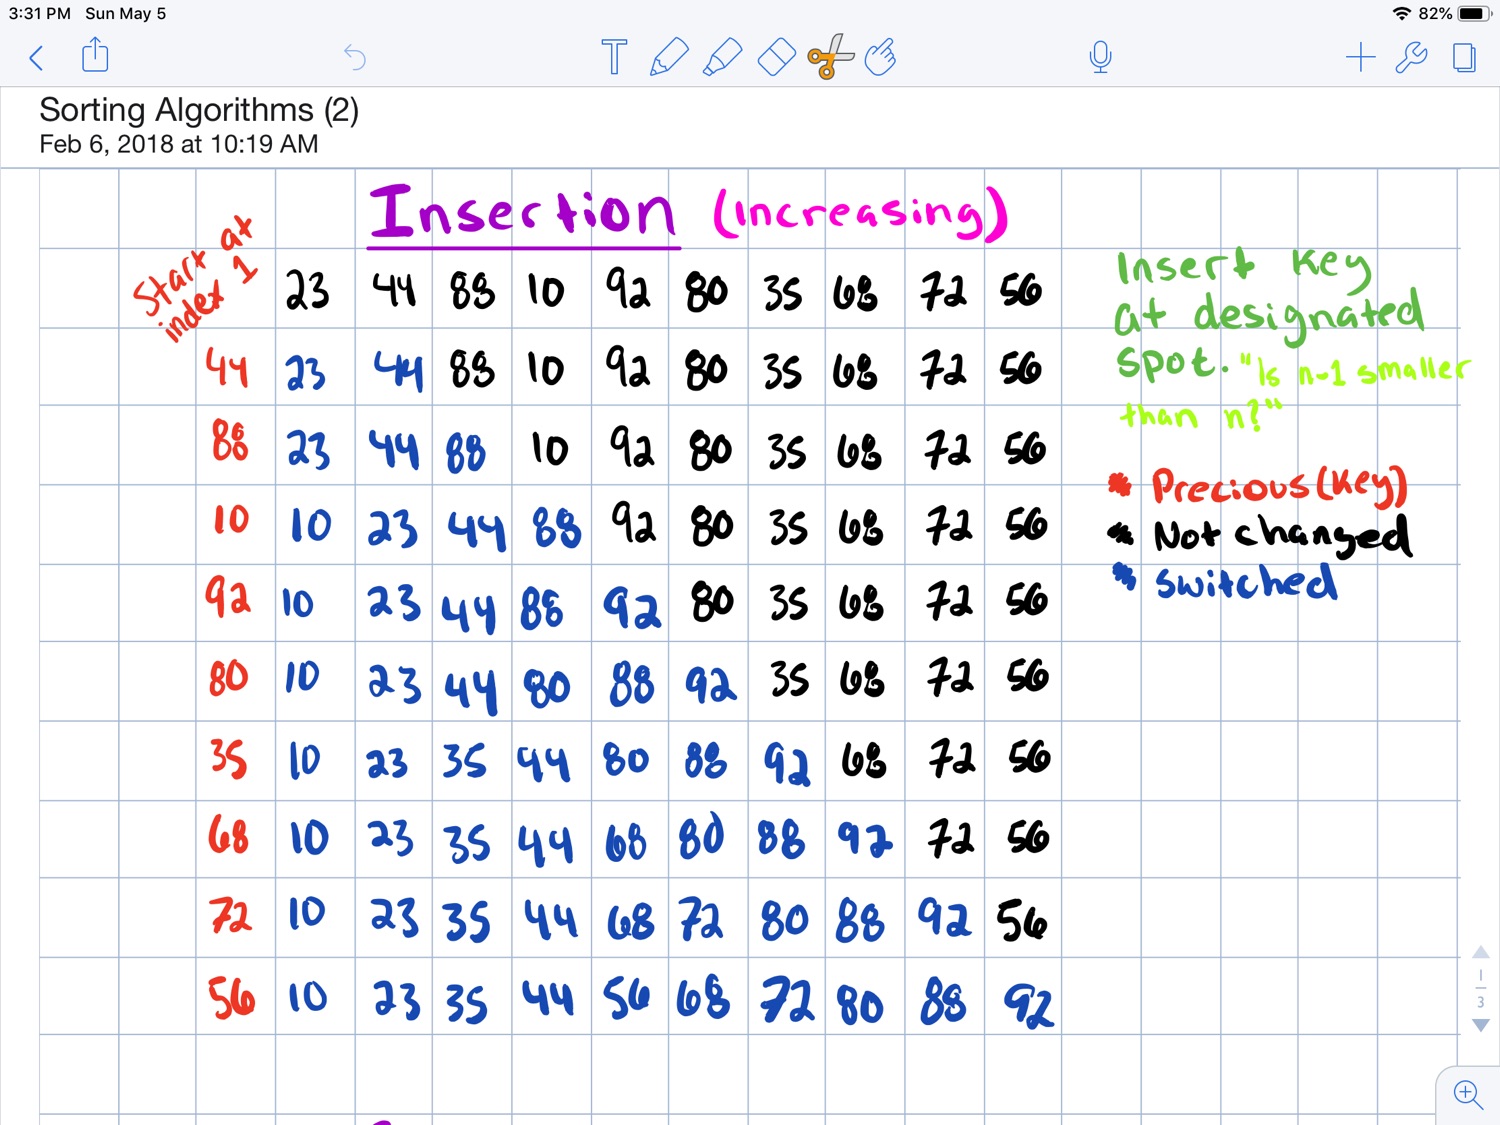 3:31 PM Sun May 5
82%
T
Sorting Algorithms (2)
Feb 6, 2018 at 10:19 AM
Insertion (Increasing)
Start at
index 1
23 44 88 10 92 80 35 68 72 56
44 23 44 88 10 92 80 35 68 72 56
88 23 44 88 10 92 80 35 68 72 56
10 10 23 44 88 92 80 35 68 72 56
92 10 23 44 88 92 80 35 68 72 56
80 10 23 44 80 88 92 35 68 72 56
35 10 23 35 44 80 88 92 68 72 56
68 10 23 35 44 68 80 88 92 72 56
72 10 23 35 44 68 72 80 88 92 56
56 10 23 35 44 56 68 72 80 88 92
Insert Key
at designated
spot. "Is n-1 smaller
than n?"
* Precious (Key)
* Not changed
* Switched
1
3